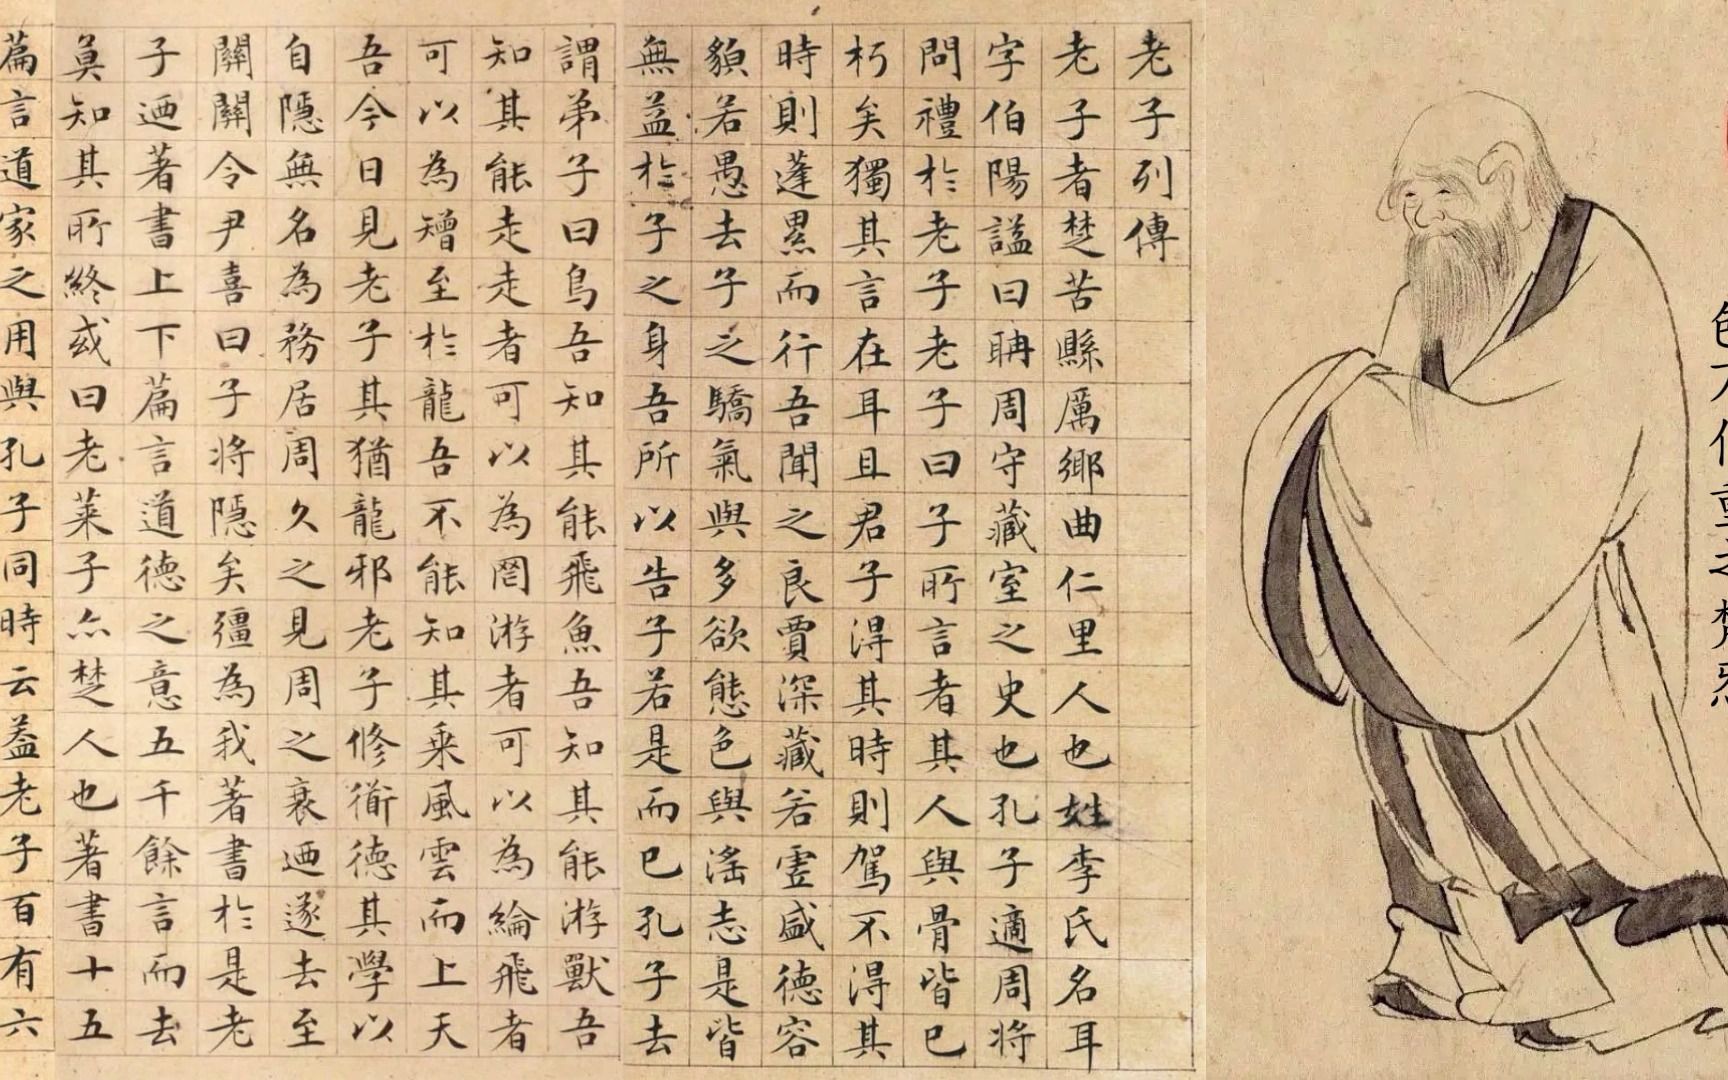 老子列傳
老子者楚苦縣厲鄉曲仁里人也姓李氏名耳
字伯陽謚曰聃周守藏室之史也孔子適周將
問禮於老子老子曰子所言者其人與骨皆已
朽矣獨其言在耳且君子得其時則駕不得其
時則蓬累而行吾聞之良賈深藏若虛盛德容
貌若愚去子之驕氣與多欲態色與滛志是皆
無益於子之身吾所以告子若是而已孔子去
謂弟子曰鳥吾知其能飛魚吾知其能游獸吾
知其能走走者可以為罔游者可以為綸飛者
可以為矰至於龍吾不能知其乘風雲而上天
吾今日見老子其猶龍邪老子修衜德其學以
自隱無名為務居周久之見周之衰迺遂去至
關關令尹喜曰子將隱矣彊為我著書於是老
子迺著書上下篇言道德之意五千餘言而去
莫知其所終或曰老萊子亦楚人也著書十五
篇言道家之用與孔子同時云蓋老子百有六